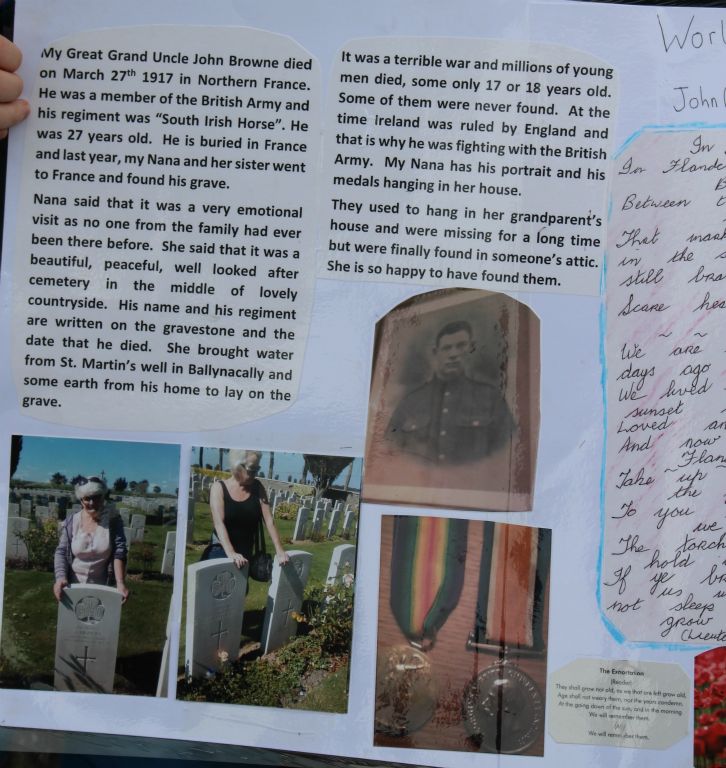 My Great Grand Uncle John Browne died
on March 27th 1917 in Northern France.
He was a member of the British Army and
his regiment was "South Irish Horse". He
was 27 years old. He is buried in France
and last year, my Nana and her sister went
to France and found his grave.
Nana said that it was a very emotional
visit as no one from the family had ever
been there before. She said that it was a
beautiful, peaceful, well looked after
cemetery in the middle of lovely
countryside. His name and his regiment
are written on the gravestone and the
date that he died. She brought water
from St. Martin's well in Ballynacally and
some earth from his home to lay on the
grave.
It was a terrible war and millions of young
men died, some only 17 or 18 years old.
Some of them were never found. At the
time Ireland was ruled by England and
that is why he was fighting with the British
Army. My Nana has his portrait and his
medals hanging in her house.
They used to hang in her grandparent's
house and were missing for a long time
but were finally found in someone's attic.
She is so happy to have found them.
Worl
John
In
In Flande
B
Between t
That mark
in the s
still bra
Scarce hea
~ ~
We are
days ago
We lived
sunset
Loved an
And now
Flan
Take up
the
To you
we
The torch
hold
If ye br
us
not sleep
grow
(Lieute
The Exhortation
(Reader)
They shall grow not old, as we that are left grow old,
Age shall not weary them, nor the years condemn.
At the going down of the sun, and in the morning
We will remember them.
We will remember them.